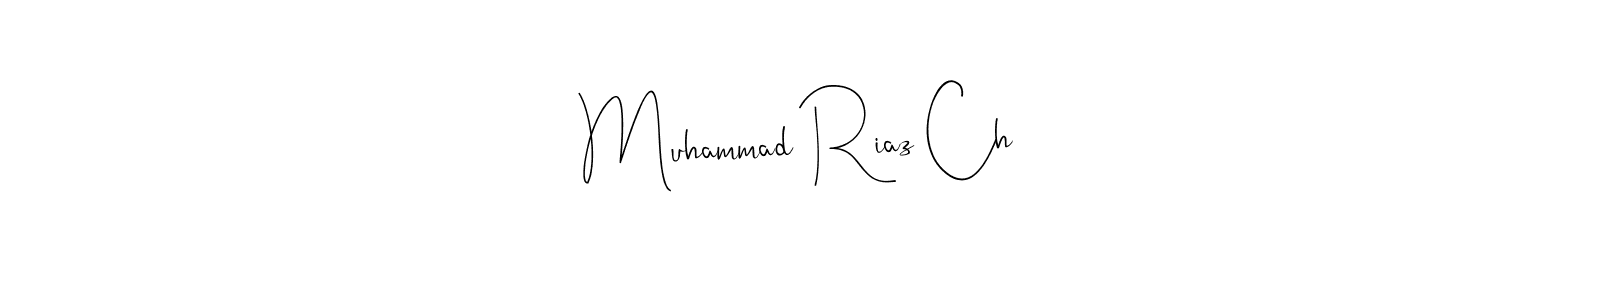 Muhammad Riaz Ch